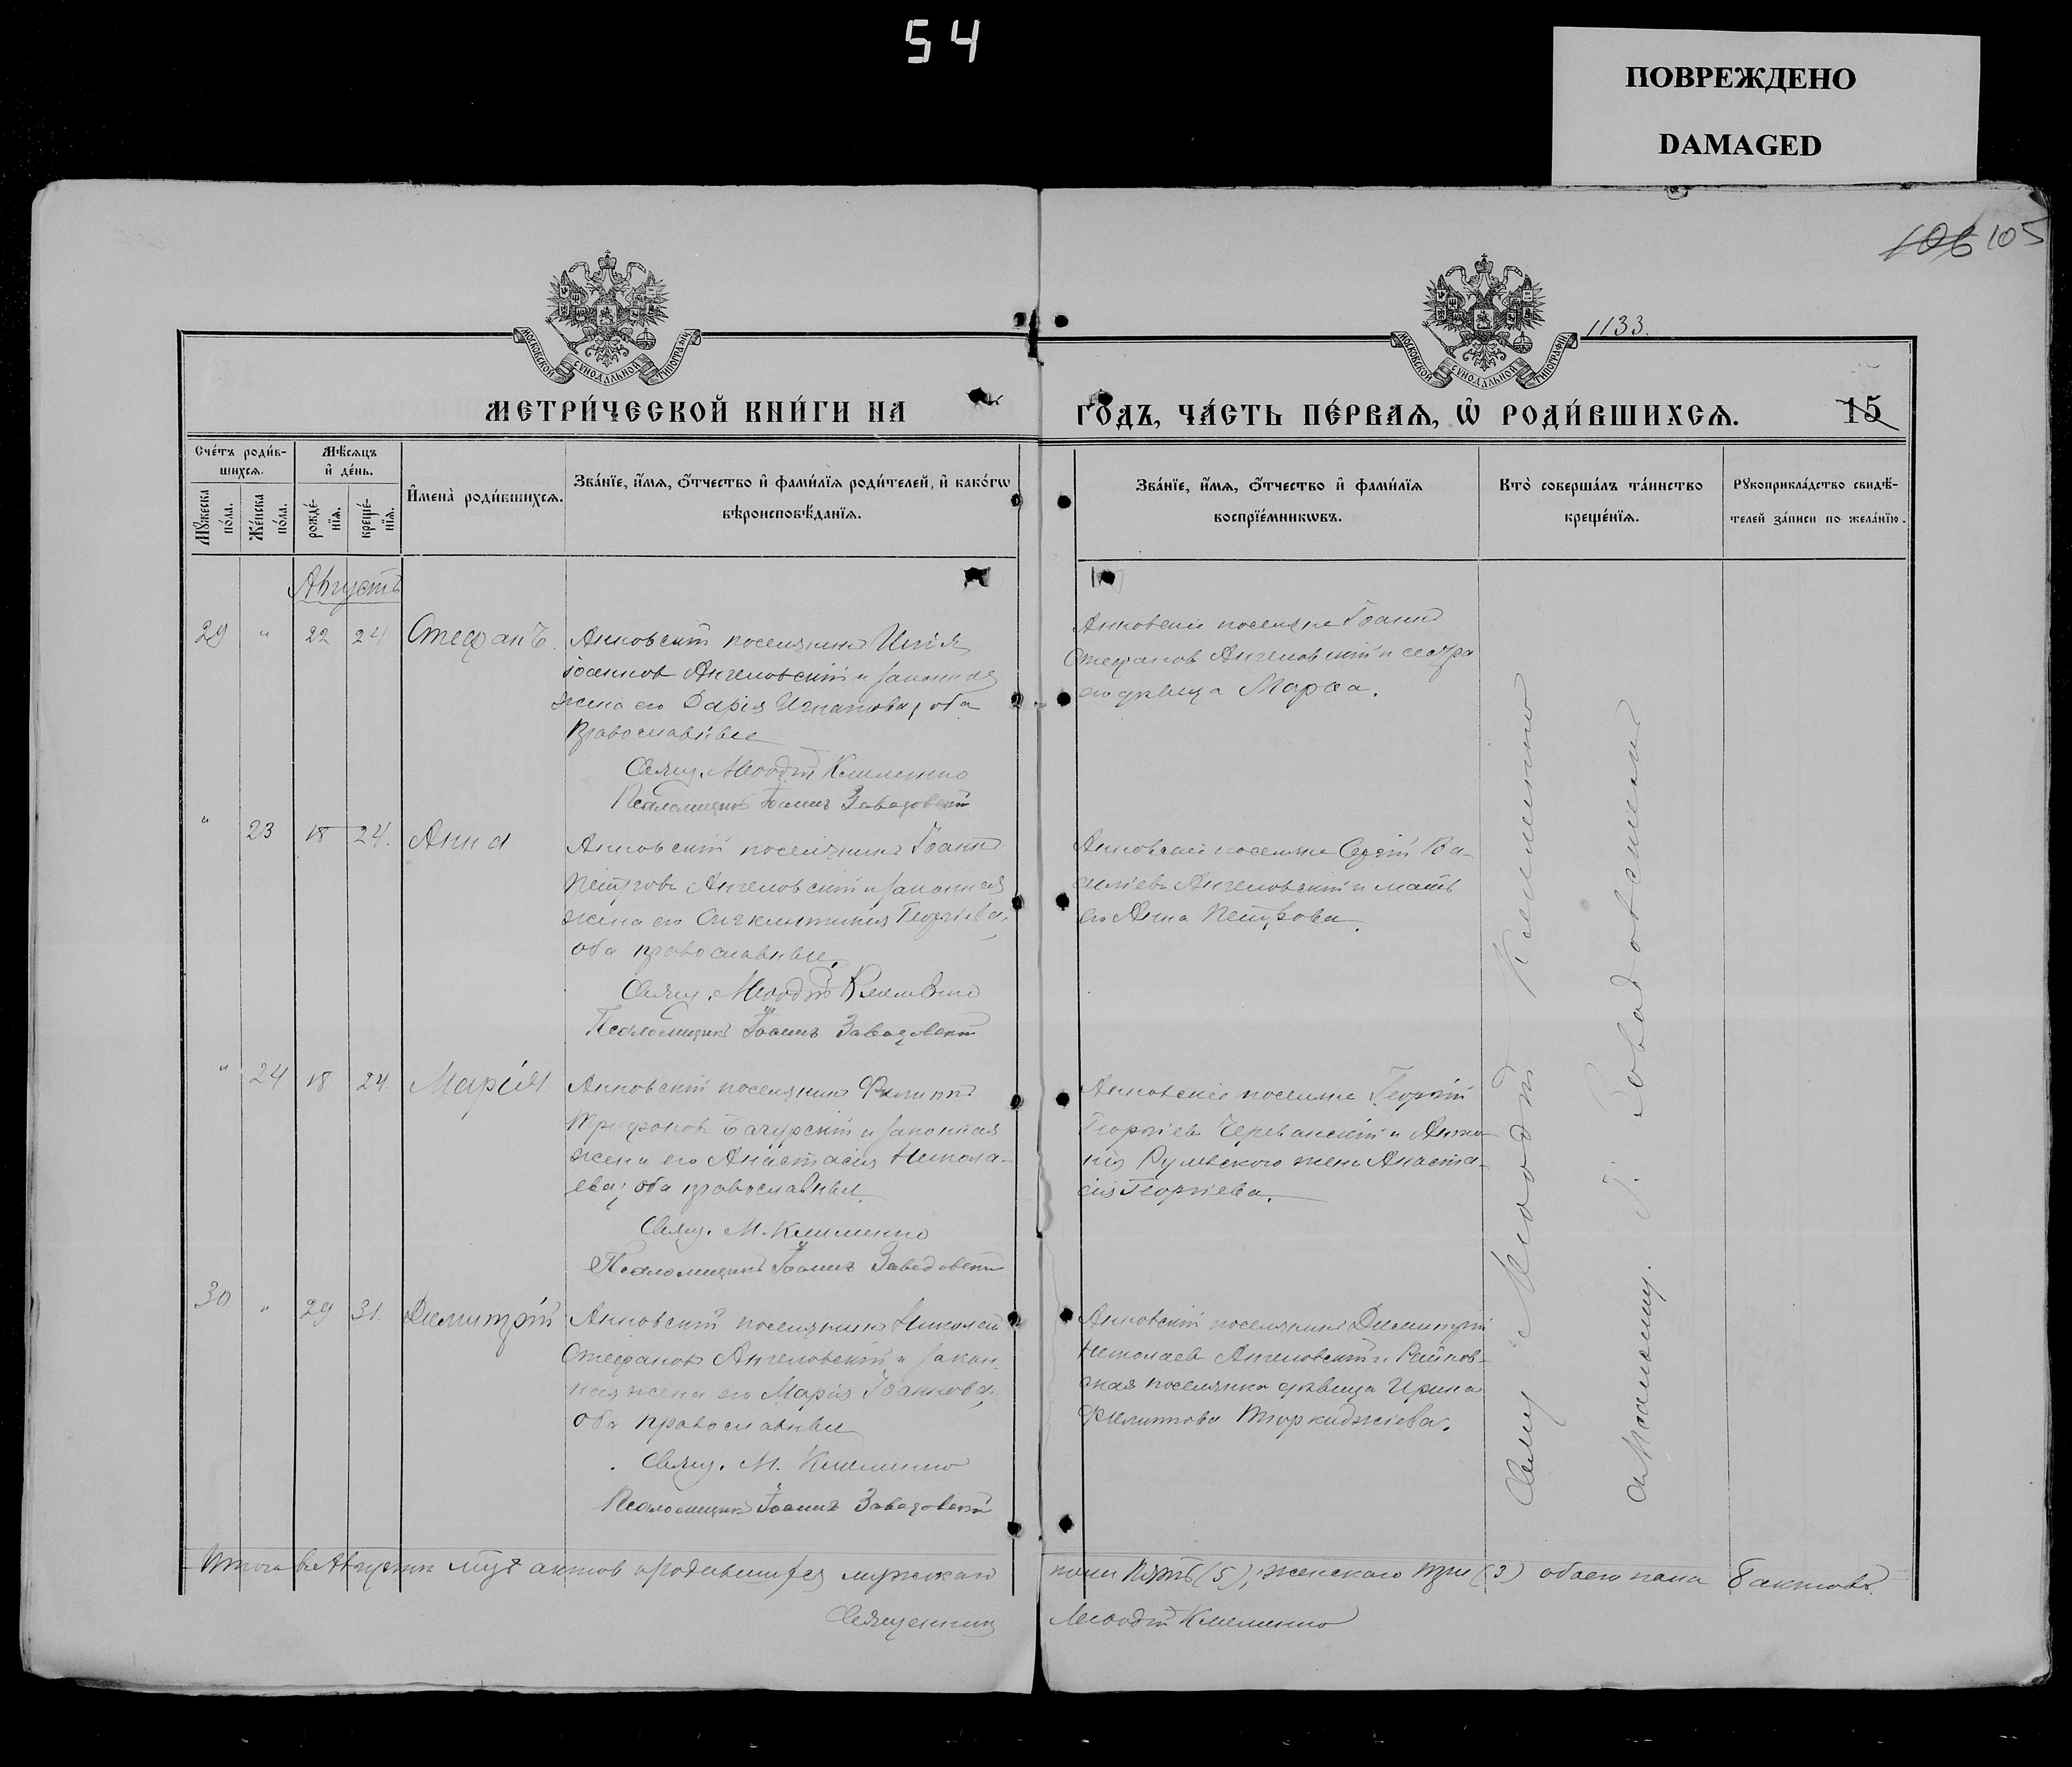 54
ПОВРЕЖДЕНО
DAMAGED
106 105
1133.
МОСКОВСКОЙ СѴНОДАЛЬНОЙ ТИПОГРАФІИ
МОСКОВСКОЙ СѴНОДАЛЬНОЙ ТИПОГРАФІИ
МЕТРИ́ЧЕСКОЙ КНИ́ГИ НА
ГО́ДЪ, ЧА́СТЬ ПЕ́РВАѦ, Ѡ҆ РОДИ́ВШИХСѦ.
15
Сче́тъ роди́вшихсѧ.
Мѣ́сѧцъ и҆ де́нь.
Мꙋ́жеска по́ла.
Же́нска по́ла.
рожде́нїѧ.
креще́нїѧ.
И҆мена̀ роди́вшихсѧ.
Зва́нїе, и҆́мѧ, ѻ҆́тчество и҆ фами́лїѧ роди́телей, и҆ како́гѡ
вѣроисповѣ́данїѧ.
Зва́нїе, и҆́мѧ, ѻ҆́тчество и҆ фами́лїѧ
воспрїе́мникѡвъ.
Кто̀ соверша́лъ та́инство
креще́нїѧ.
Рꙋкоприкла́дство свидѣ́-
телей за́писи по жела́нїю.
Августъ
29 " 22 24 Стефанъ.
Анновскій поселянинъ Илія
Іоанновъ Ангеловскій и законная
жена его Дарія Игнатова, оба
православные
Свящ. Меѳодій Клименко
Псаломщикъ Іоаннъ Завадовскій
Анновскіе поселяне Іоаннъ
Стефановъ Ангеловскій и сестра
его дѣвица Марѳа.
" 23 18 24. Анна
Анновскій поселянинъ Іоаннъ
Петровъ Ангеловскій и законная
жена его Сигклитикія Георгіева,
оба православные,
Свящ. Меѳодій Клименко
Псаломщикъ Іоаннъ Завадовскій
Анновскіе поселяне Сергій Ва-
силіевъ Ангеловскій и мать
его Анна Петрова.
" 24 18 24. Марія
Анновскій поселянинъ Филиппъ
Трифоновъ Бачурскій и законная
жена его Анастасія Никола-
ева; оба православные.
Свящ. М. Клименко
Псаломщикъ Іоаннъ Завадовскій
Анновскіе поселяне Георгій
Георгіевъ Череванскій и Анто-
нія Рулевского жена Анаста-
сія Георгіева.
30 " 29 31. Димитрій
Анновскій поселянинъ Николай
Стефановъ Ангеловскій и закон-
ная жена его Марія Іоаннова,
оба православные
Свящ. М. Клименко
Псаломщикъ Іоаннъ Завадовскій
Анновскій поселянинъ Димитрій
Николаевъ Ангеловскій и
поселянка дѣвица Ирина
Филиппова
Свящ. Меѳодій Клименко
Псаломщ. І. Завадовскій
Итого въ Августѣ мцѣ актовъ о родившихся мужскаго
пола пять (5), женскаго три (3) обоего пола 8 актовъ.
Священникъ Меѳодій Клименко